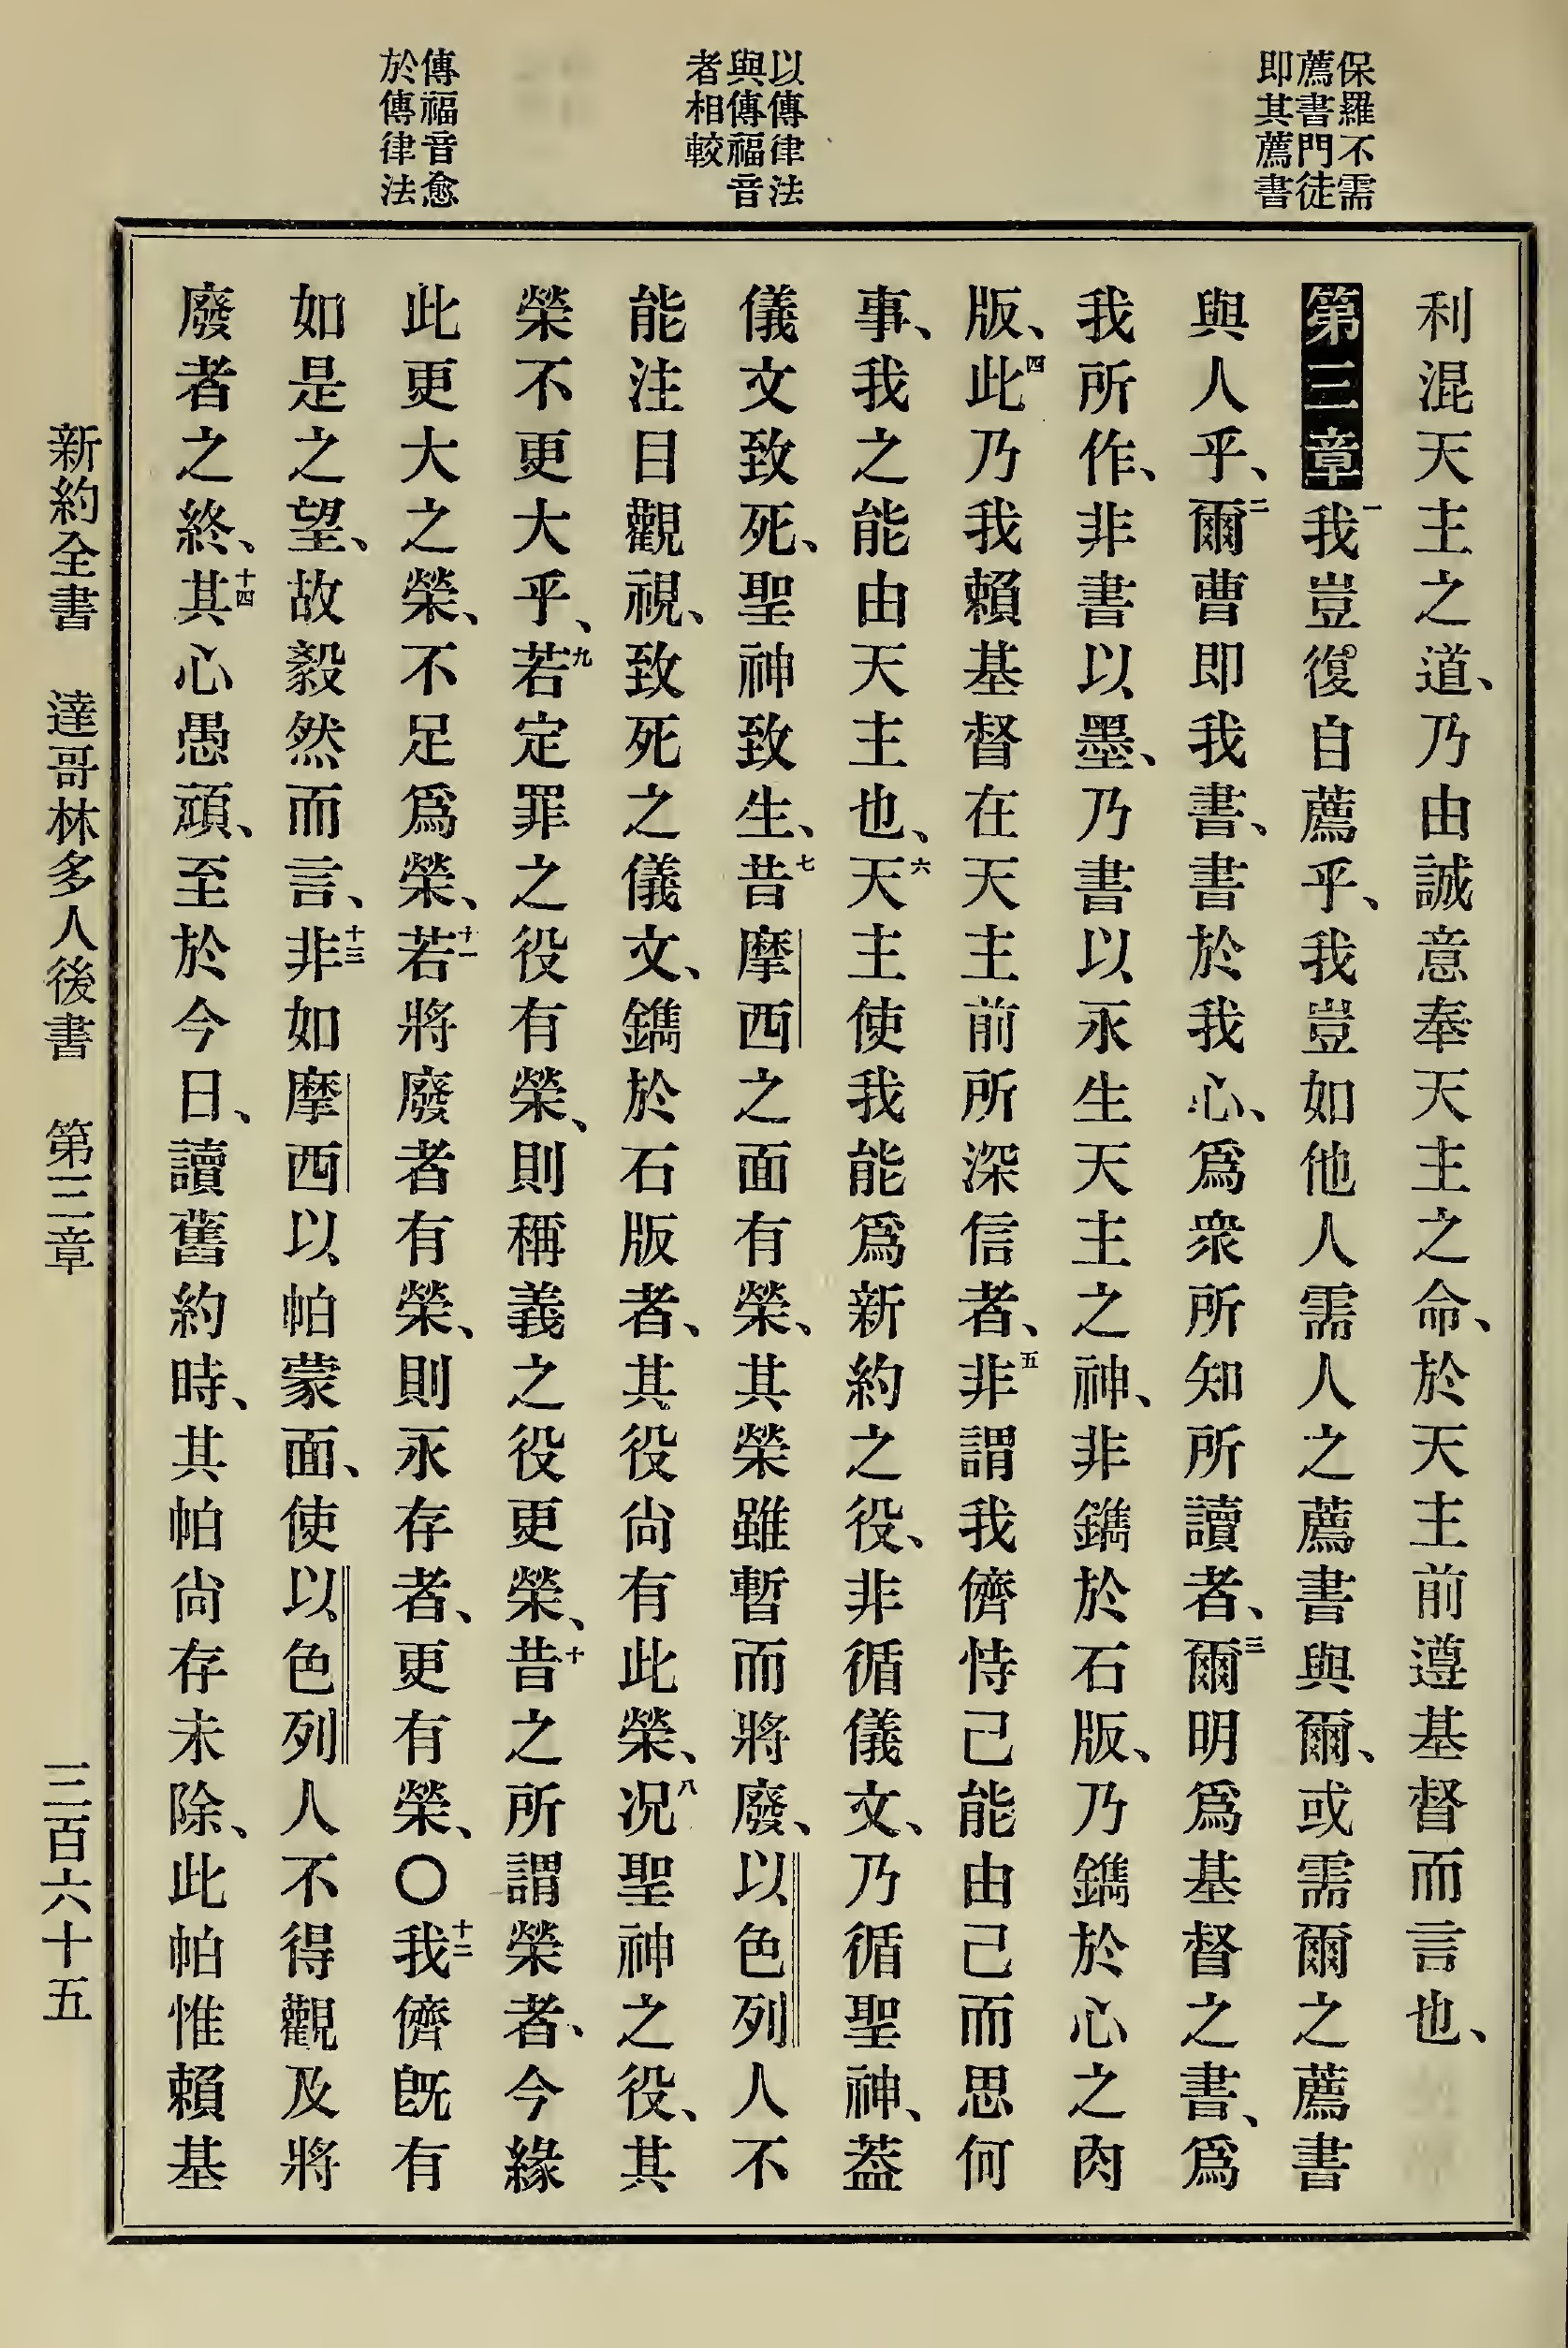 保羅不需
薦書門徒
即其薦書
以傳律法
與傳福音
者相較
傳福音愈
於傳律法
利混天主之道、乃由誠意奉天主之命、於天主前遵基督而言也、
第三章一我豈復自薦乎、我豈如他人需人之薦書與爾、或需爾之薦書
與人乎、二爾曹即我書、書於我心、爲衆所知所讀者、三爾明爲基督之書、爲
我所作、非書以墨、乃書以永生天主之神、非鐫於石版、乃鐫於心之肉
版、四此乃我賴基督在天主前所深信者、五非謂我儕恃己能由己而思何
事、我之能由天主也、六天主使我能爲新約之役、非循儀文、乃循聖神、蓋
儀文致死、聖神致生、七昔摩西之面有榮、其榮雖暫而將廢、以色列人不
能注目觀視、致死之儀文、鐫於石版者、其役尙有此榮、八况聖神之役、其
榮不更大乎、九若定罪之役有榮、則稱義之役更榮、十昔之所謂榮者、今緣
此更大之榮、不足爲榮、十一若將廢者有榮、則永存者、更有榮、〇十二我儕旣有
如是之望、故毅然而言、十三非如摩西以帕蒙面、使以色列人不得觀及將
廢者之終、十四其心愚頑、至於今日、讀舊約時、其帕尙存未除、此帕惟賴基
新約全書 達哥林多人後書 第三章 三百六十五